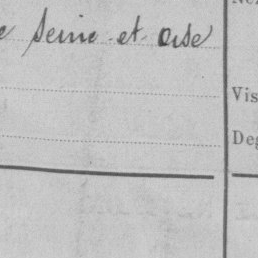 Seine-et-Oise
Vis
Deg